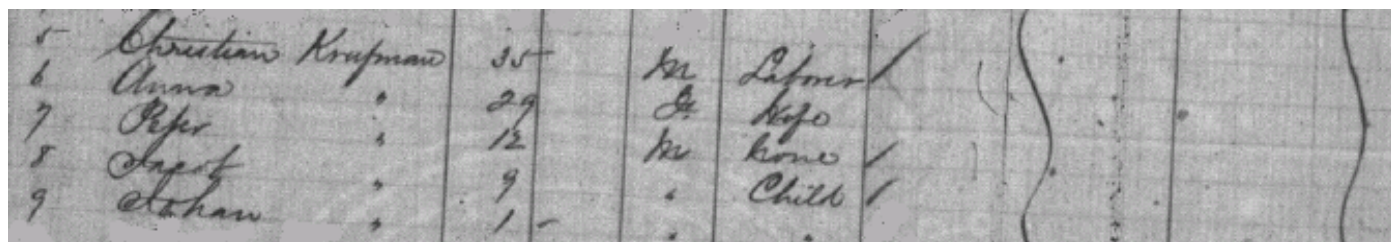 5 Christian Krufman 35 M Laborer /
6 Anna " 29 F. Wife
7 Peter " 12 M None /
8 Jacob " 9 " Child /
9 Johan " 1 - " "